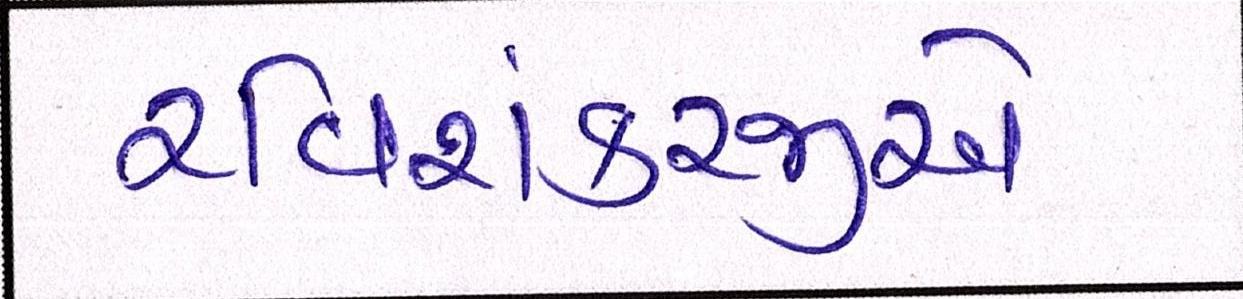 રવિશંકરજીએ